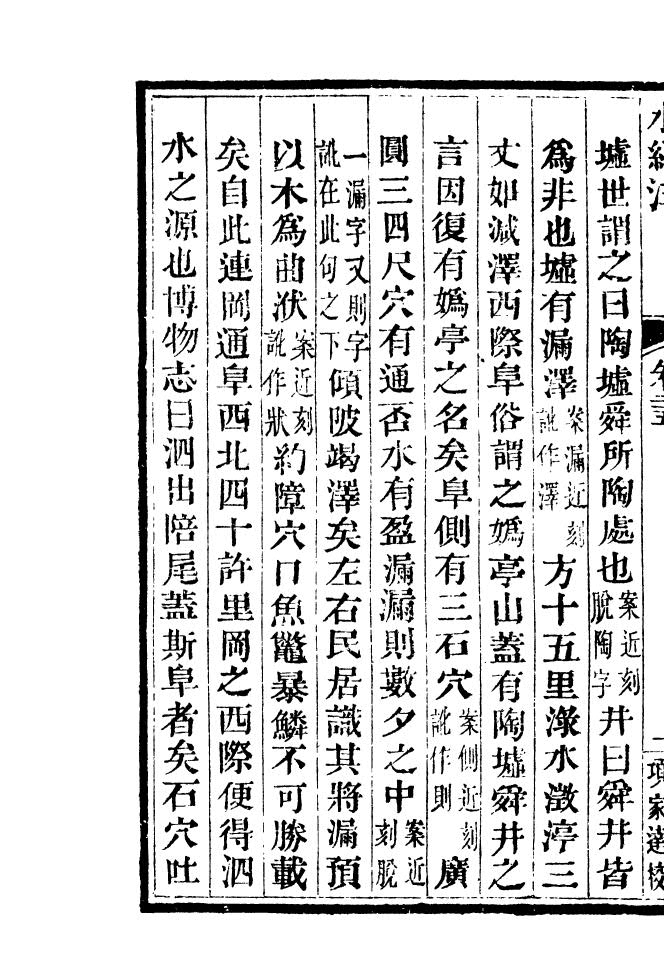 水經注　卷二十五　一　項家達校
墟世謂之曰陶墟舜所陶處也案近刻脫陶字井曰舜井皆
爲非也墟有漏澤案漏近刻訛作澤方十五里淥水澂渟三
丈如減澤西際阜俗謂之嬀亭山蓋有陶墟舜井之
言因復有嬀亭之名矣阜側有三石穴案側近刻訛作則廣
圓三四尺穴有通否水有盈漏漏則數夕之中案近刻脫
一漏字又則字訛在此句之下傾陂竭澤矣左右民居識其將漏預
以木爲曲洑案近刻訛作狀約障穴口魚鼈暴鱗不可勝載
矣自此連岡通阜西北四十許里岡之西際便得泗
水之源也博物志曰泗出陪尾蓋斯阜者矣石穴吐